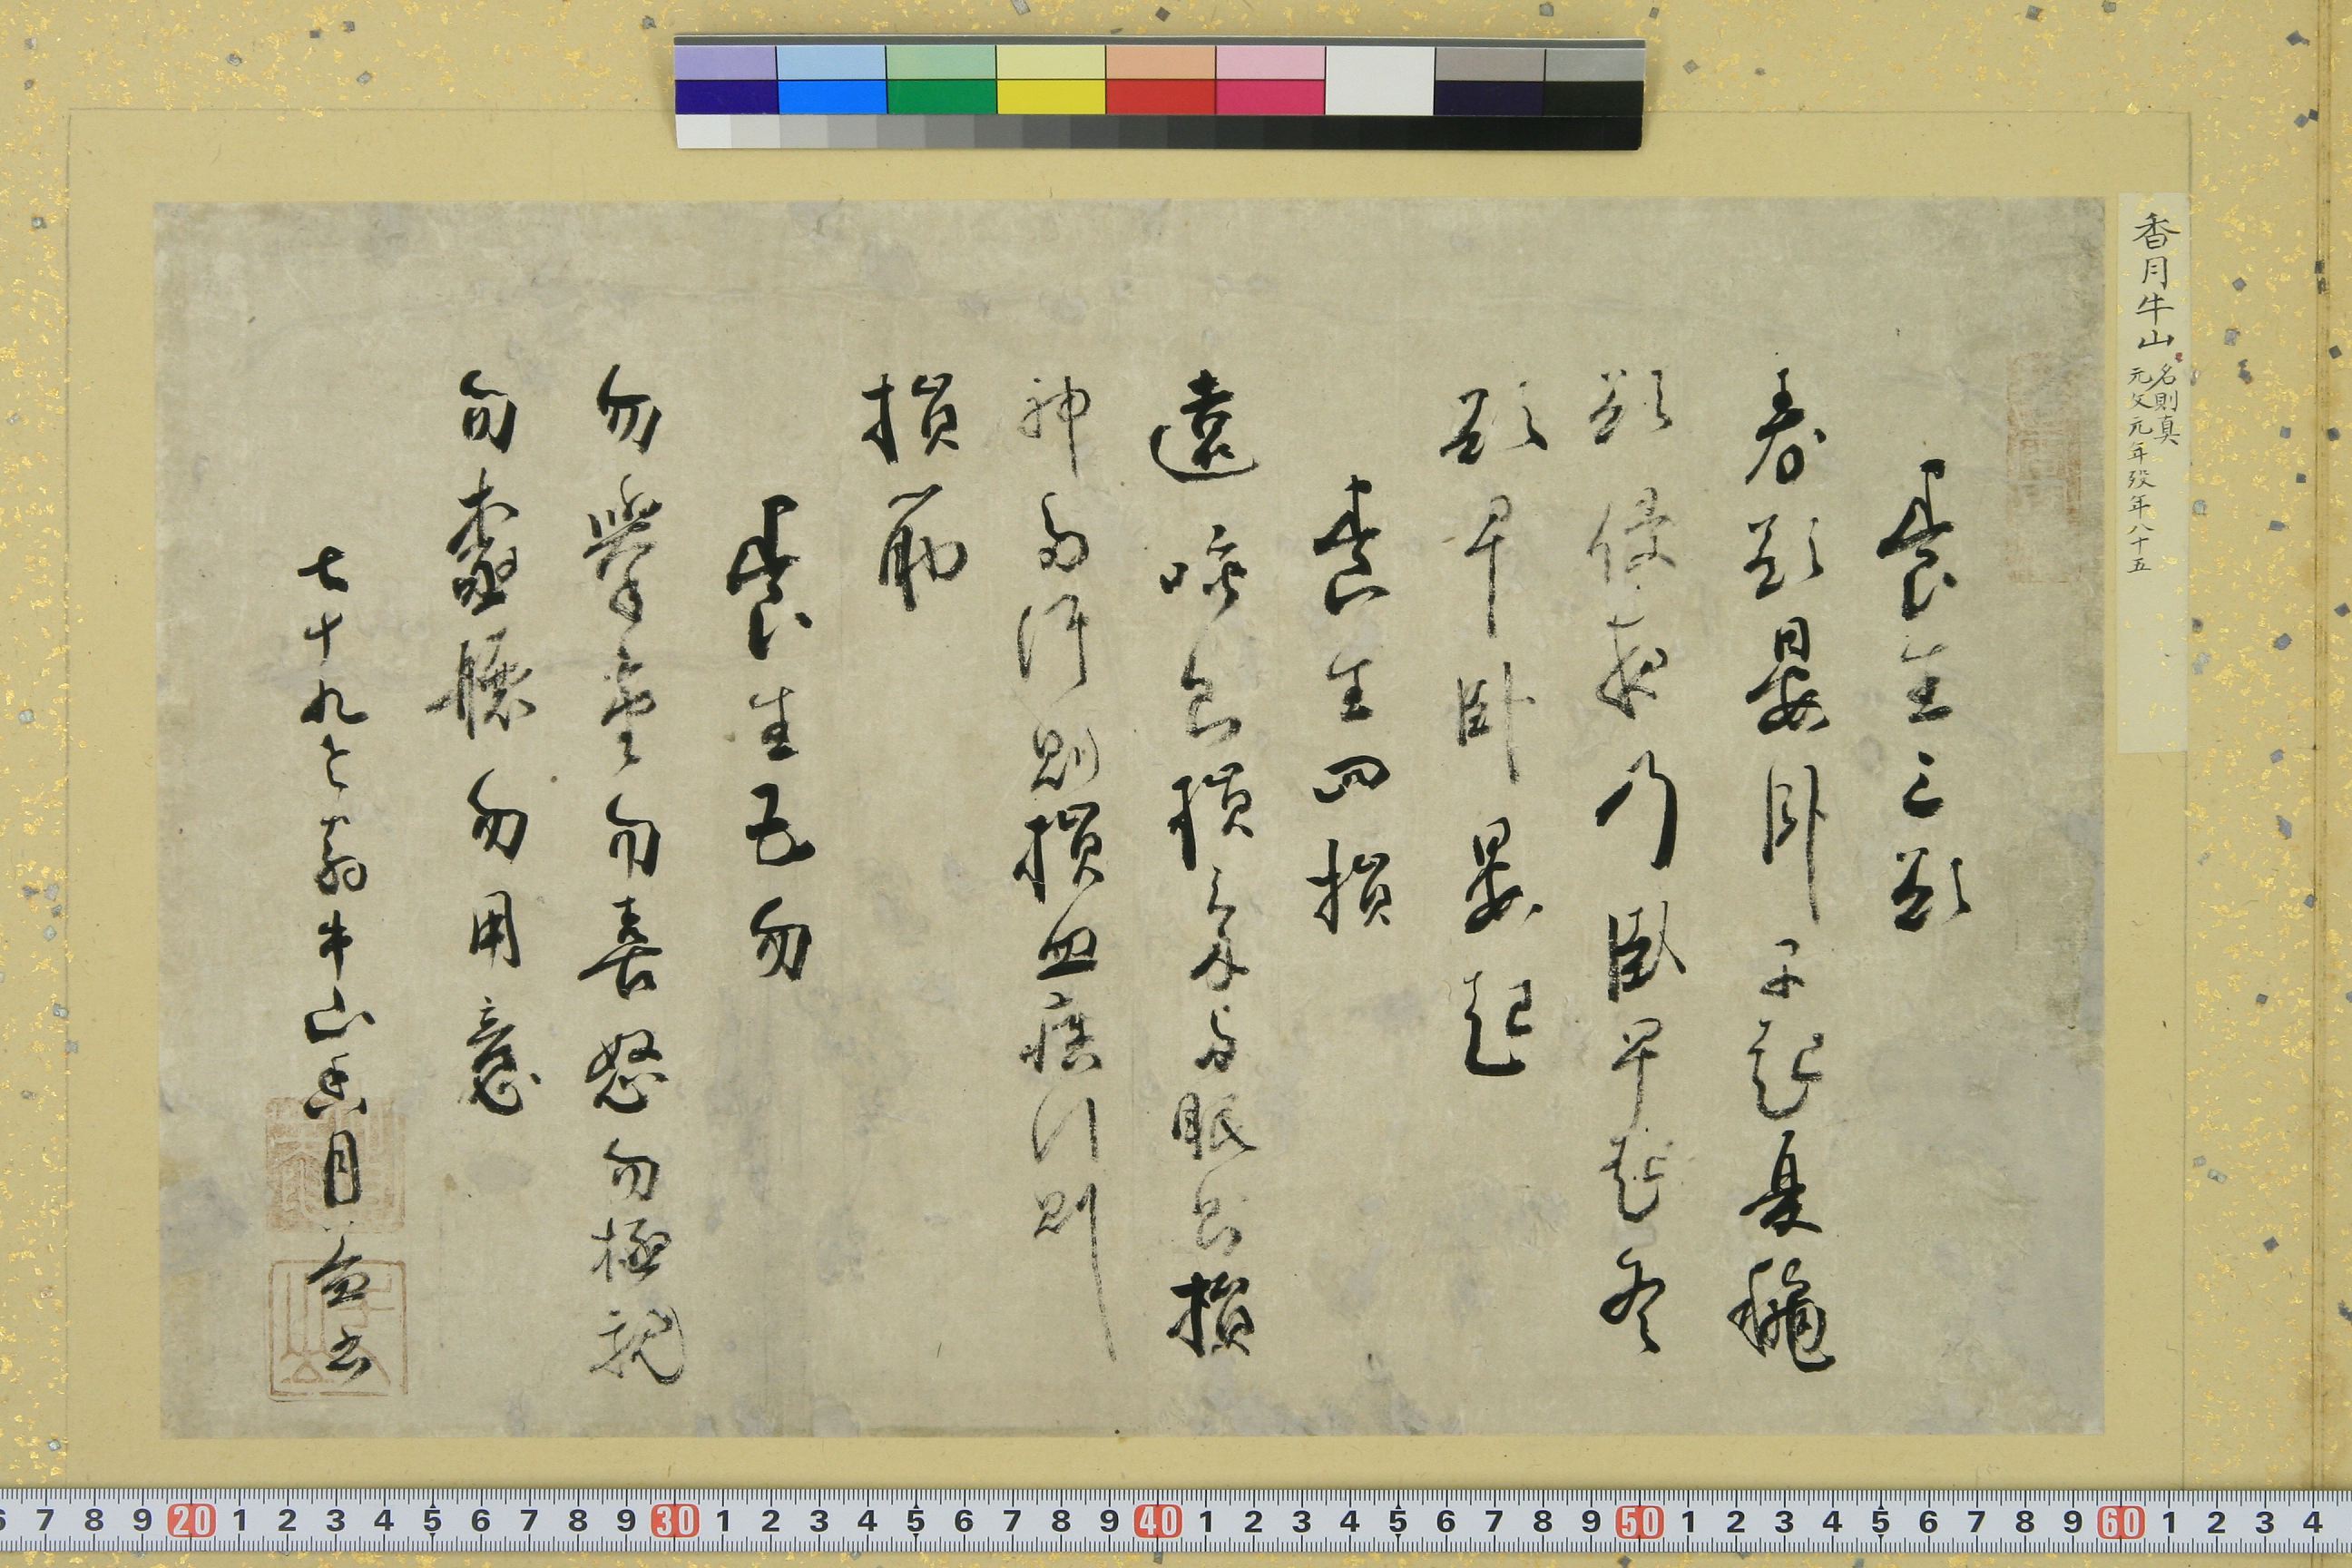 香月牛山 名則真
元文元年歿年八十五
養生三欲
春欲晏臥早起夏穐
欲侵夜乃臥早起冬
欲早臥晏起
養生四損
遠唾則損氣多眠則損
神多汗則損血疾行則
損筋
養生五勿
勿擧重勿喜怒勿極視
勿極聴勿用意
七十九之翁牛山香月益書